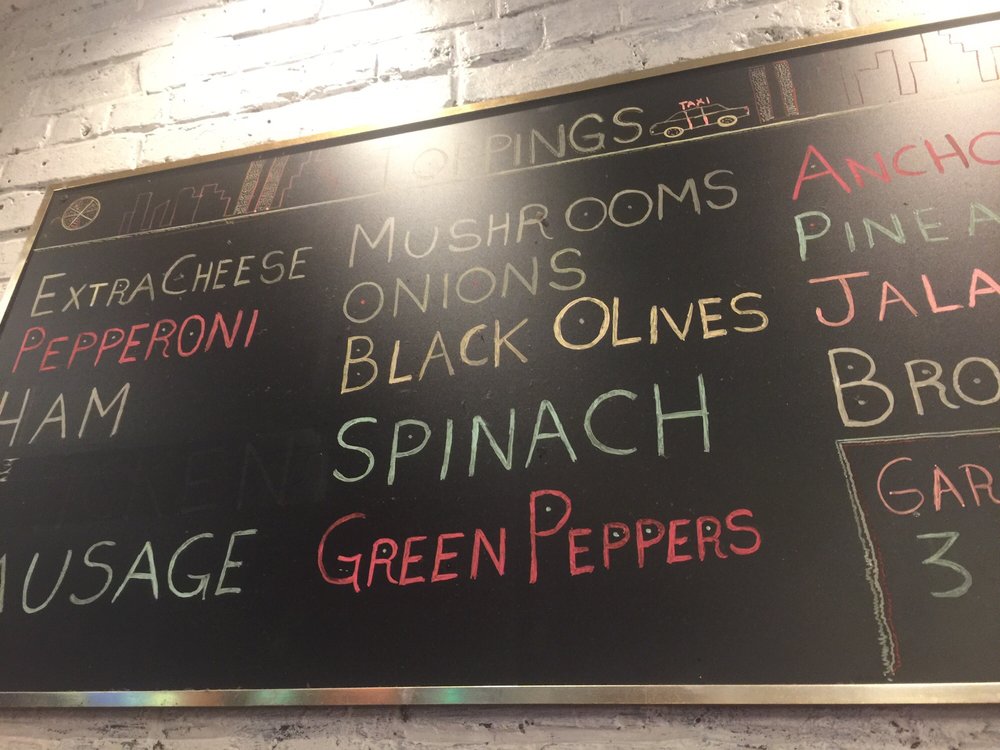 TOPPINGS
TAXI
EXTRA CHEESE
PEPPERONI
HAM
AUSAGE
MUSHROOMS
ONIONS
BLACK OLIVES
SPINACH
GREEN PEPPERS
ANCHO
PINEA
JALA
BRO
GAR
3